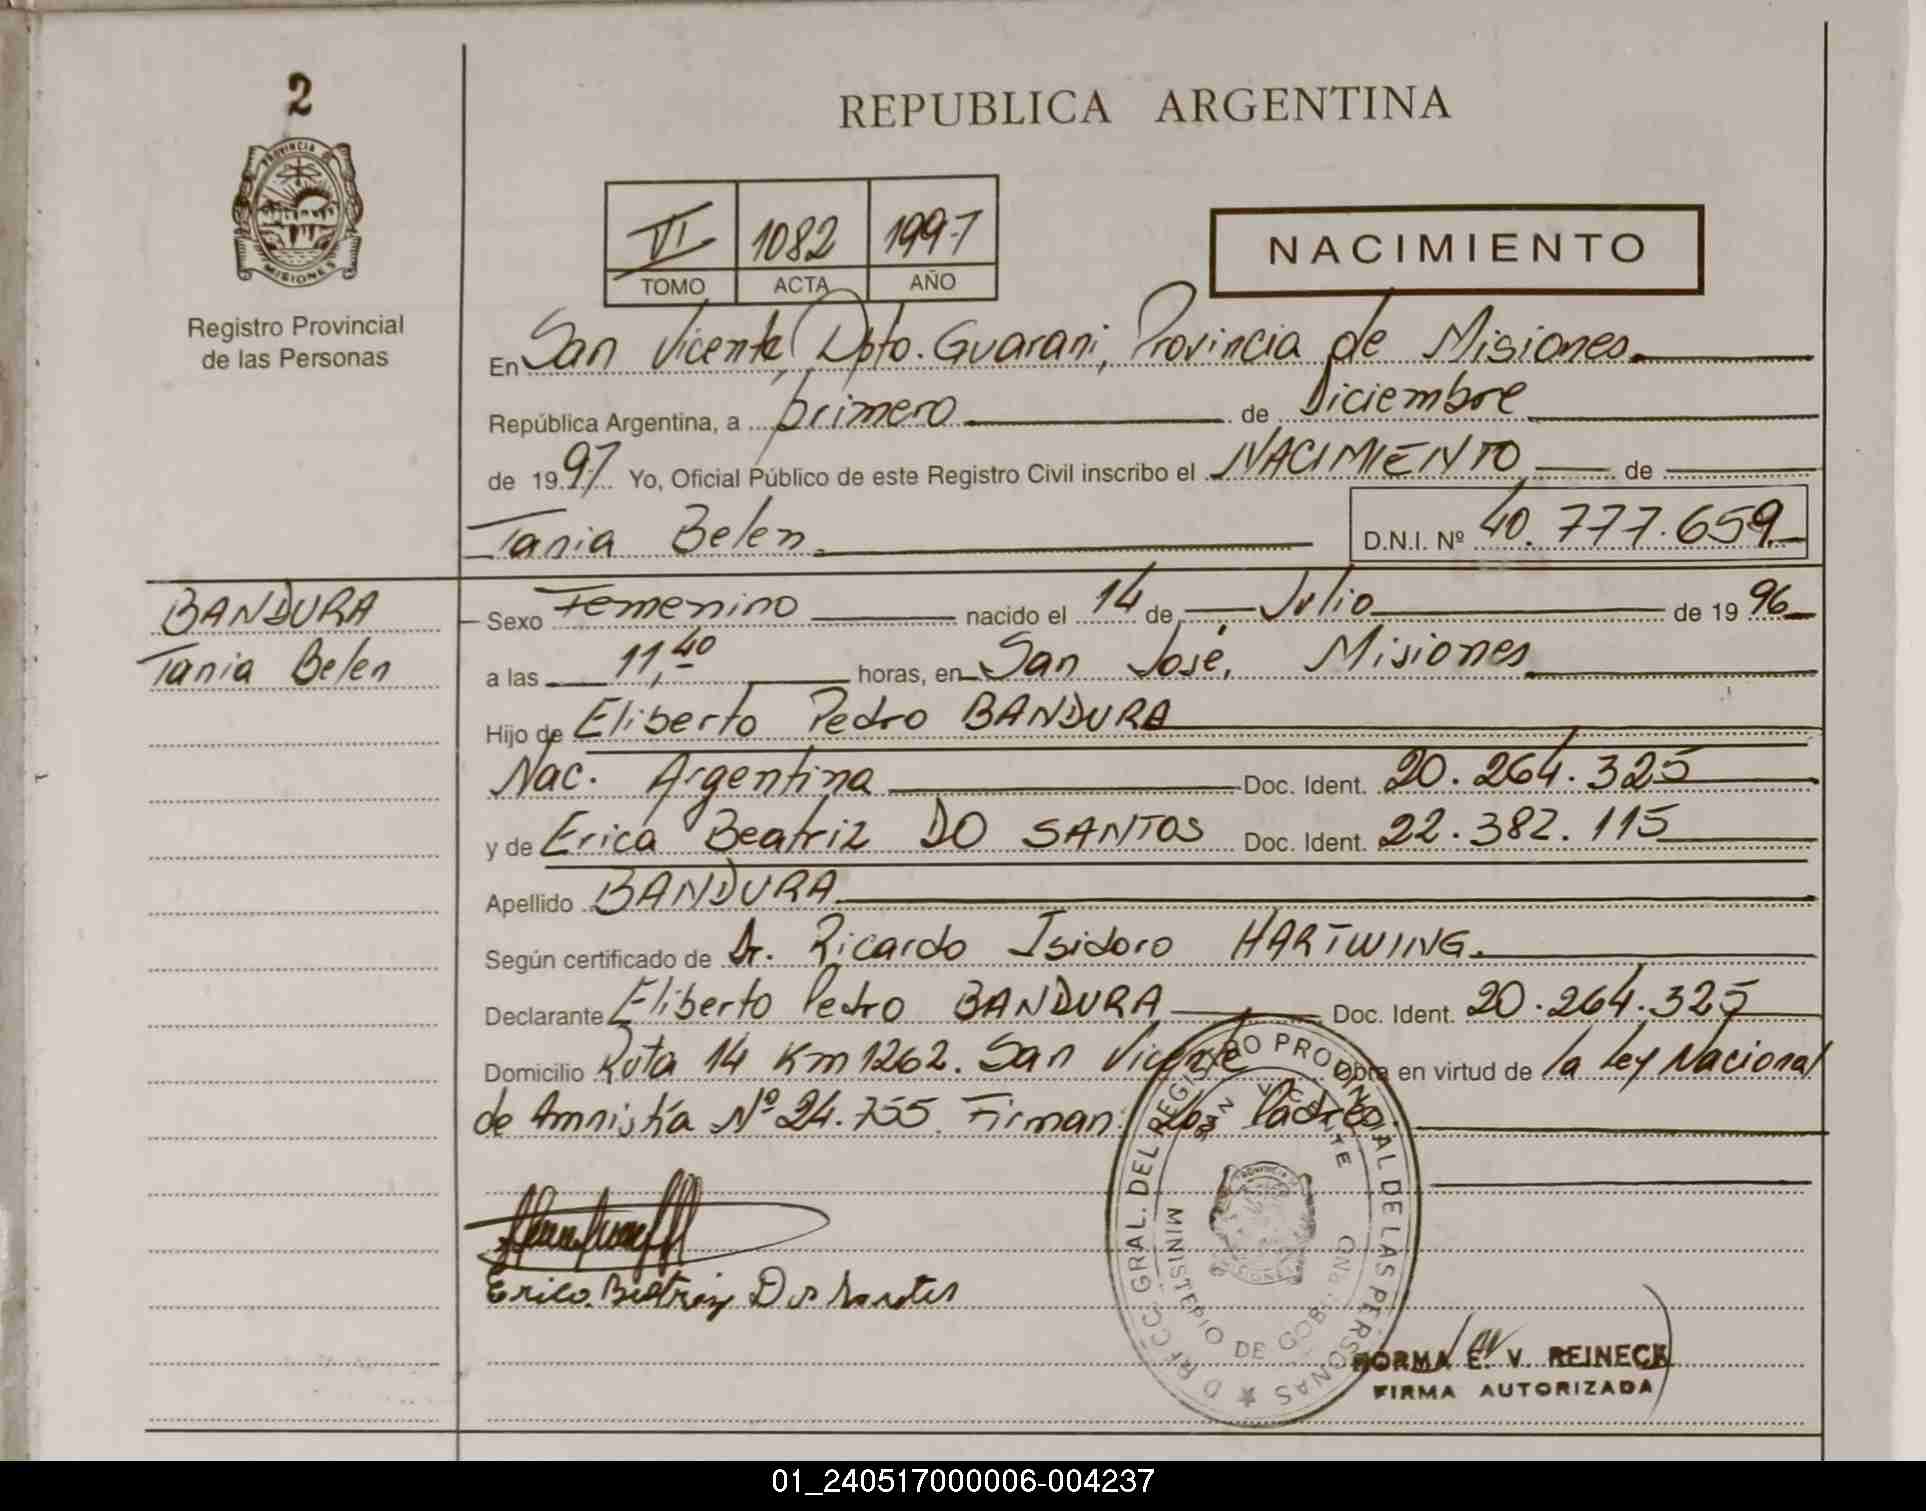 2
REPUBLICA ARGENTINA
PROVINCIA DE
MISIONES
Registro Provincial
de las Personas
VI 1082 1997
TOMO ACTA AÑO
NACIMIENTO
En San Vicente, Dpto. Guarani, Provincia de Misiones
República Argentina, a primero de Diciembre
de 1997 Yo, Oficial Público de este Registro Civil inscribo el NACIMIENTO de
Tania Belen D.N.I. Nº 40.777.659
BANDURA
Tania Belen
Sexo Femenino nacido el 14 de Julio de 19 96
a las 11,40 horas, en San José, Misiones
Hijo de Eliberto Pedro BANDURA
Nac. Argentina Doc. Ident. 20.264.325
y de Erica Beatriz DO SANTOS Doc. Ident. 22.382.115
Apellido BANDURA
Según certificado de Dr. Ricardo Isidoro HARTWING.
Declarante Eliberto Pedro BANDURA Doc. Ident. 20.264.325
Domicilio Ruta 14 Km 1262. San Vicente Obra en virtud de la Ley Nacional
de Amnistía Nº 24.755. Firman: Los Padres
GRAL. DEL REGISTRO PROVINCIAL DE LAS PERSONAS
SAN VICENTE
MINISTERIO DE GOBIERNO
Erica Beatriz Do Santos
NORMA E. V. REINECK
FIRMA AUTORIZADA
01_240517000006-004237